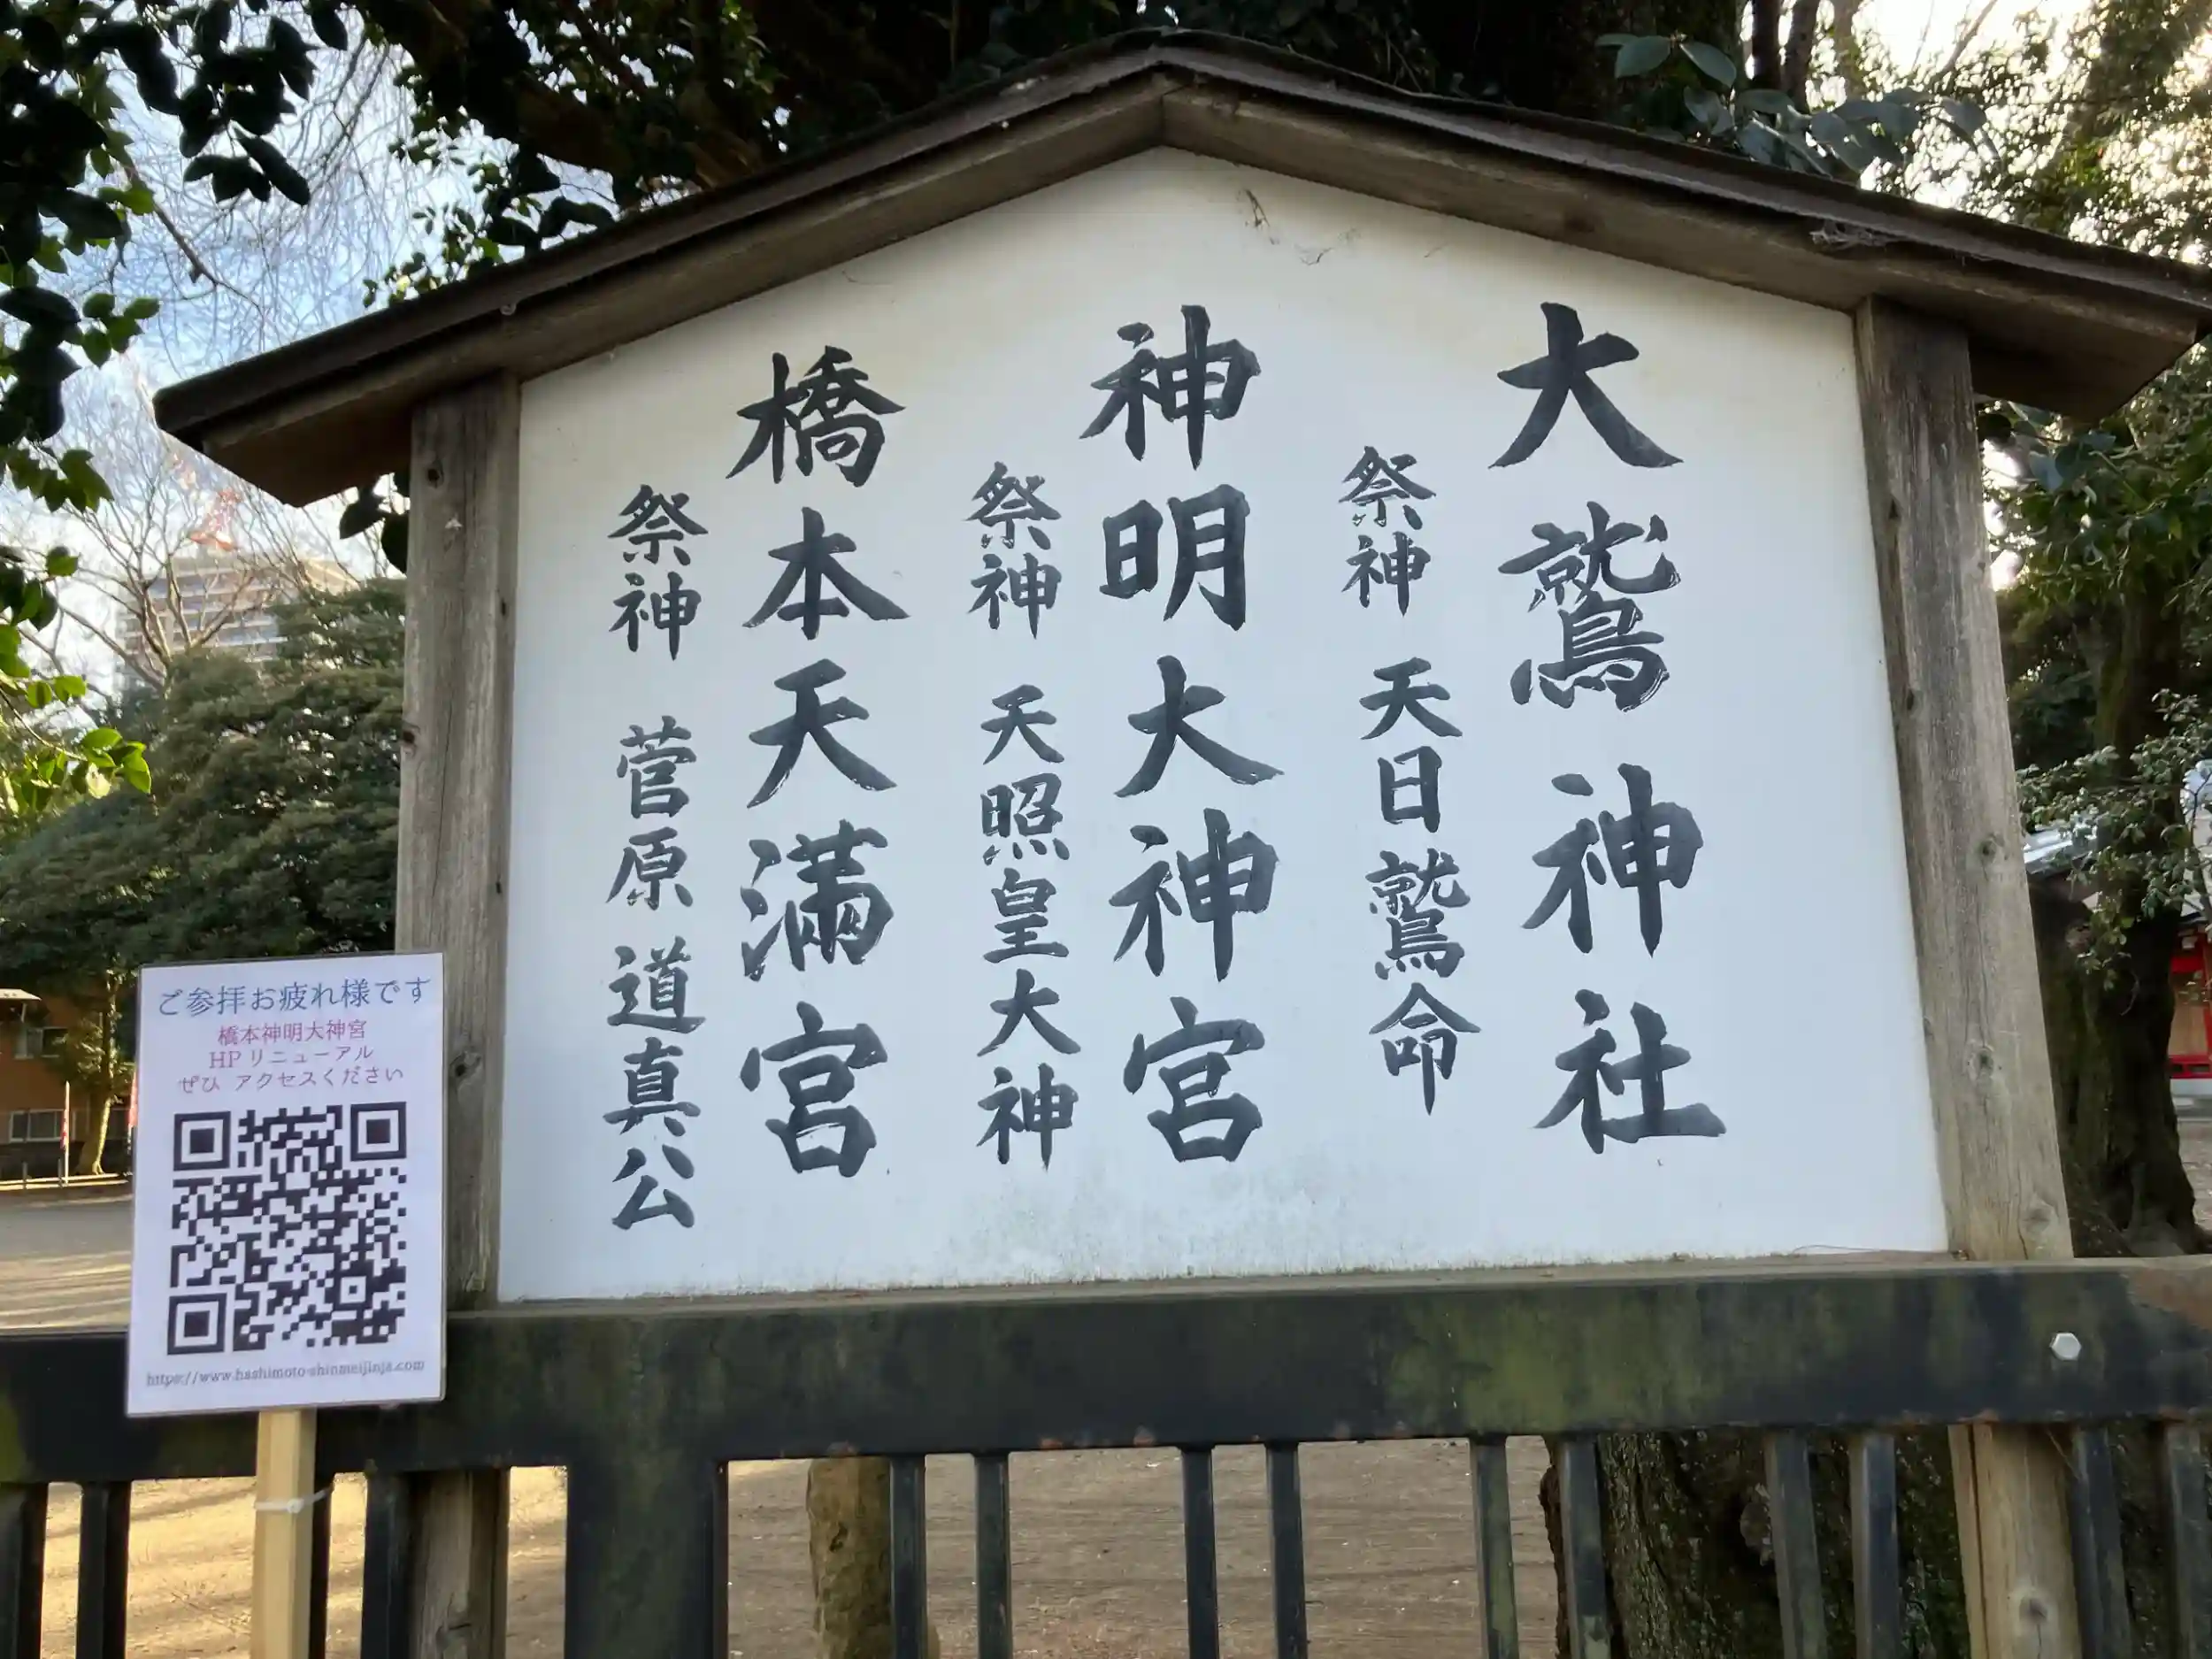 大鷲神社
祭神 天日鷲命
神明大神宮
祭神 天照皇大神
橋本天満宮
祭神 菅原道真公
ご参拝お疲れ様です
橋本神明大神宮
HPリニューアル
ぜひ アクセスください
https://www.hashimoto-shinmeijinja.com